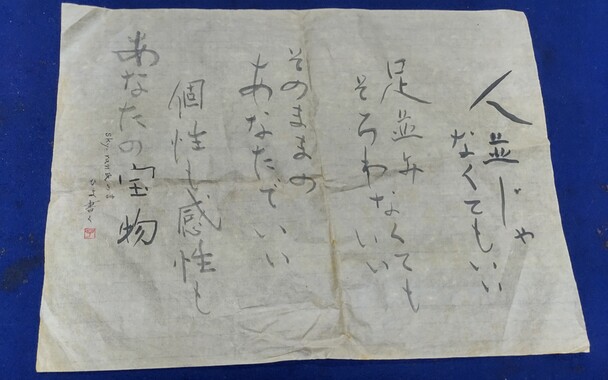 人並じゃ
なくてもいい
足並み なくても
そろわない いい
そのままの
あなたでいい
個性も感性も
あなたの宝物